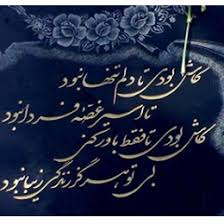 کاش بودی تا دلم تنها نبود
تا اسیر غصه فردا نبود
کاش بودی تا فقط باور کنی
بی تو هرگز زندگی زیبا نبود